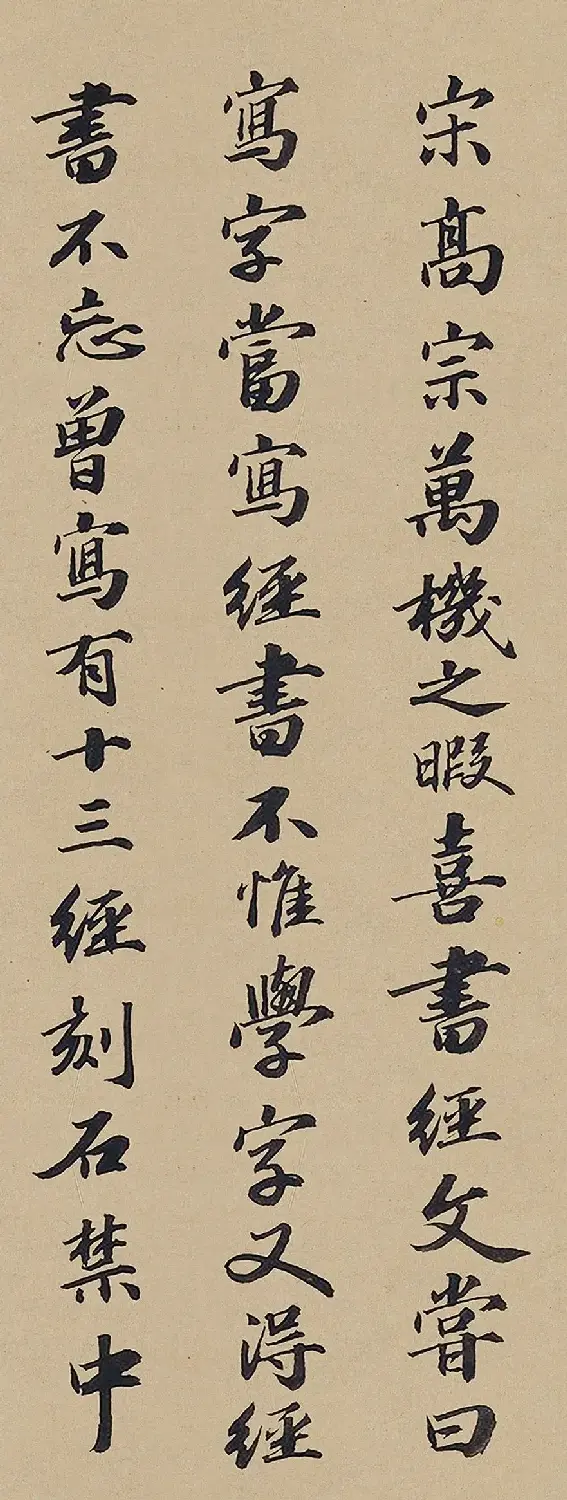 宋高宗萬機之暇喜書經文嘗曰
寫字當寫經書不惟學字又得經
書不忘曾寫有十三經刻石禁中